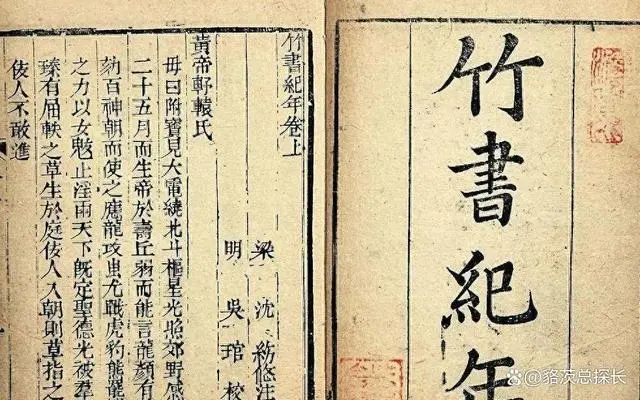 竹書紀年
竹書紀年卷上
梁 沈 約 注
明 吳 琯 校
黃帝軒轅氏
母曰附寶見大電繞北斗樞星光照郊野感
二十五月而生帝於壽丘弱而能言龍顏有
劾百神朝而使之應龍攻蚩尤戰虎豹熊羆
之力以女魃止淫雨天下既定聖德光被羣
臻有屈軼之草生於庭佞人入朝則草指之
佞人不敢進
@貉茨总探长